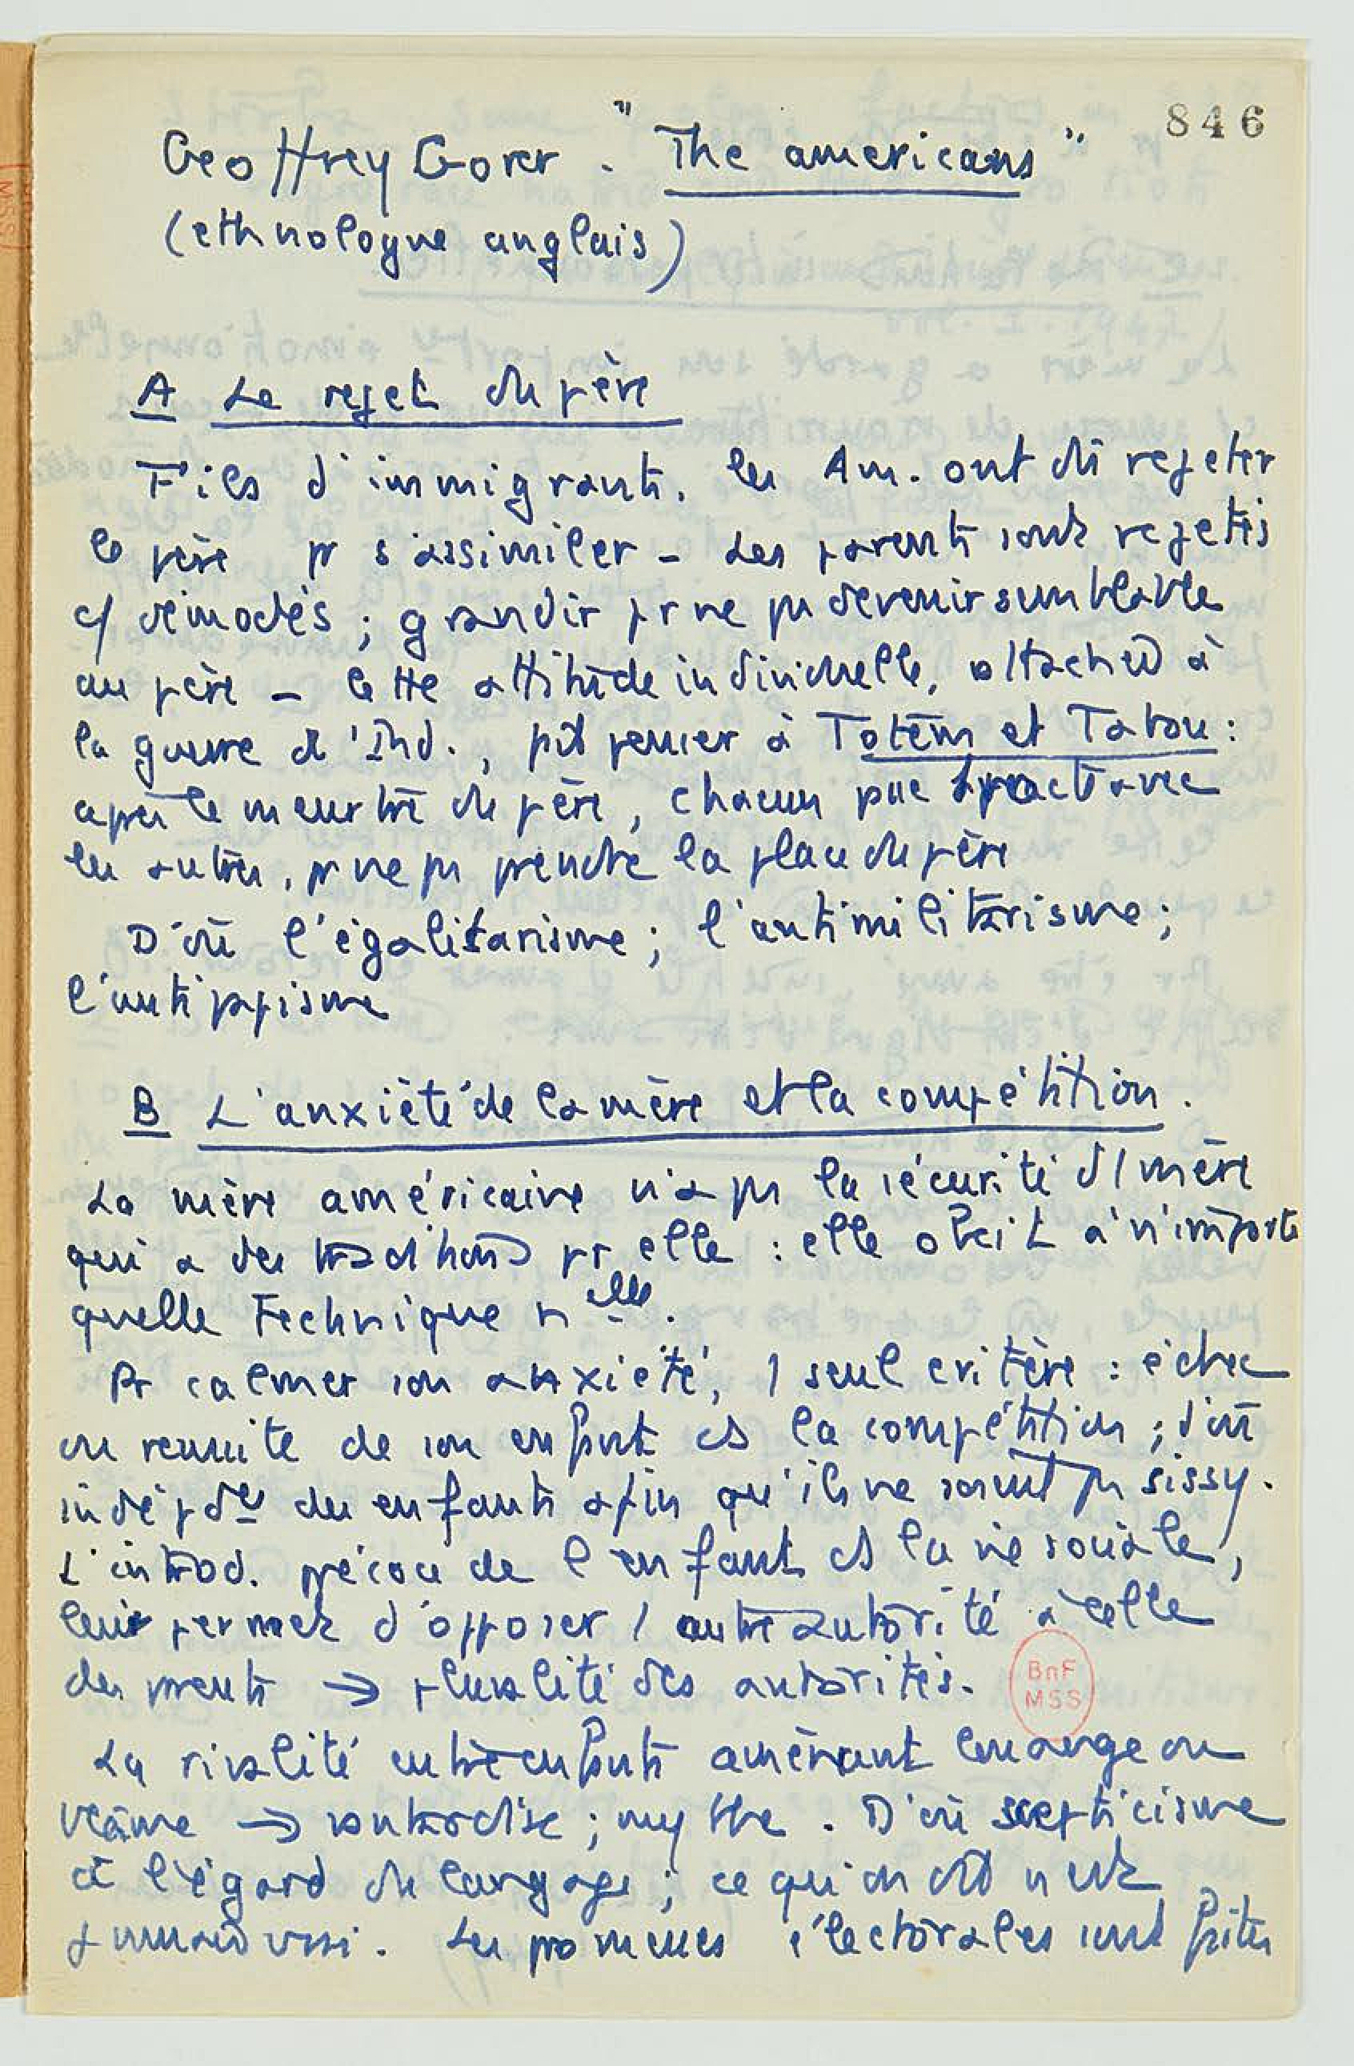 846
Geoffrey Gorer. "The americans"
(ethnologue anglais)
A Le rejet du père
Fils d'immigrants, les Am. ont dû rejeter
le père pr s'assimiler - Les parents sont rejetés
c/ démodés ; grandir pr ne pas devenir semblable
au père - Cette attitude individuelle, attachée à
la guerre d'Ind., fait penser à Totem et Tabou :
après le meurtre du père, chacun pacte avec
les autres, pr ne pas prendre la place du père
D'où l'égalitarisme ; l'antimilitarisme ;
l'antipapisme
B L'anxiété de la mère et la compétition.
La mère américaine n'a pas la sécurité d/ mère
qui a des traditions pr elle : elle obéit à n'importe
quelle Technique nelle.
Pr calmer son anxiété, 1 seul critère : échec
ou réussite de son enfant ds la compétition ; d'où
indépdce des enfants afin qu'ils ne soient pas sissy.
L'introd. précoce de l'enfant ds la vie sociale,
leur permet d'opposer 1 autre autorité à celle
des parents → pluralité des autorités.
BnF
MSS
La rivalité entre enfants amènent louange ou
blâme → ; mythe. D'où scepticisme
à l'égard du langage ; ce qu'on dit n'est
jamais vrai. Les promesses électorales sont faites